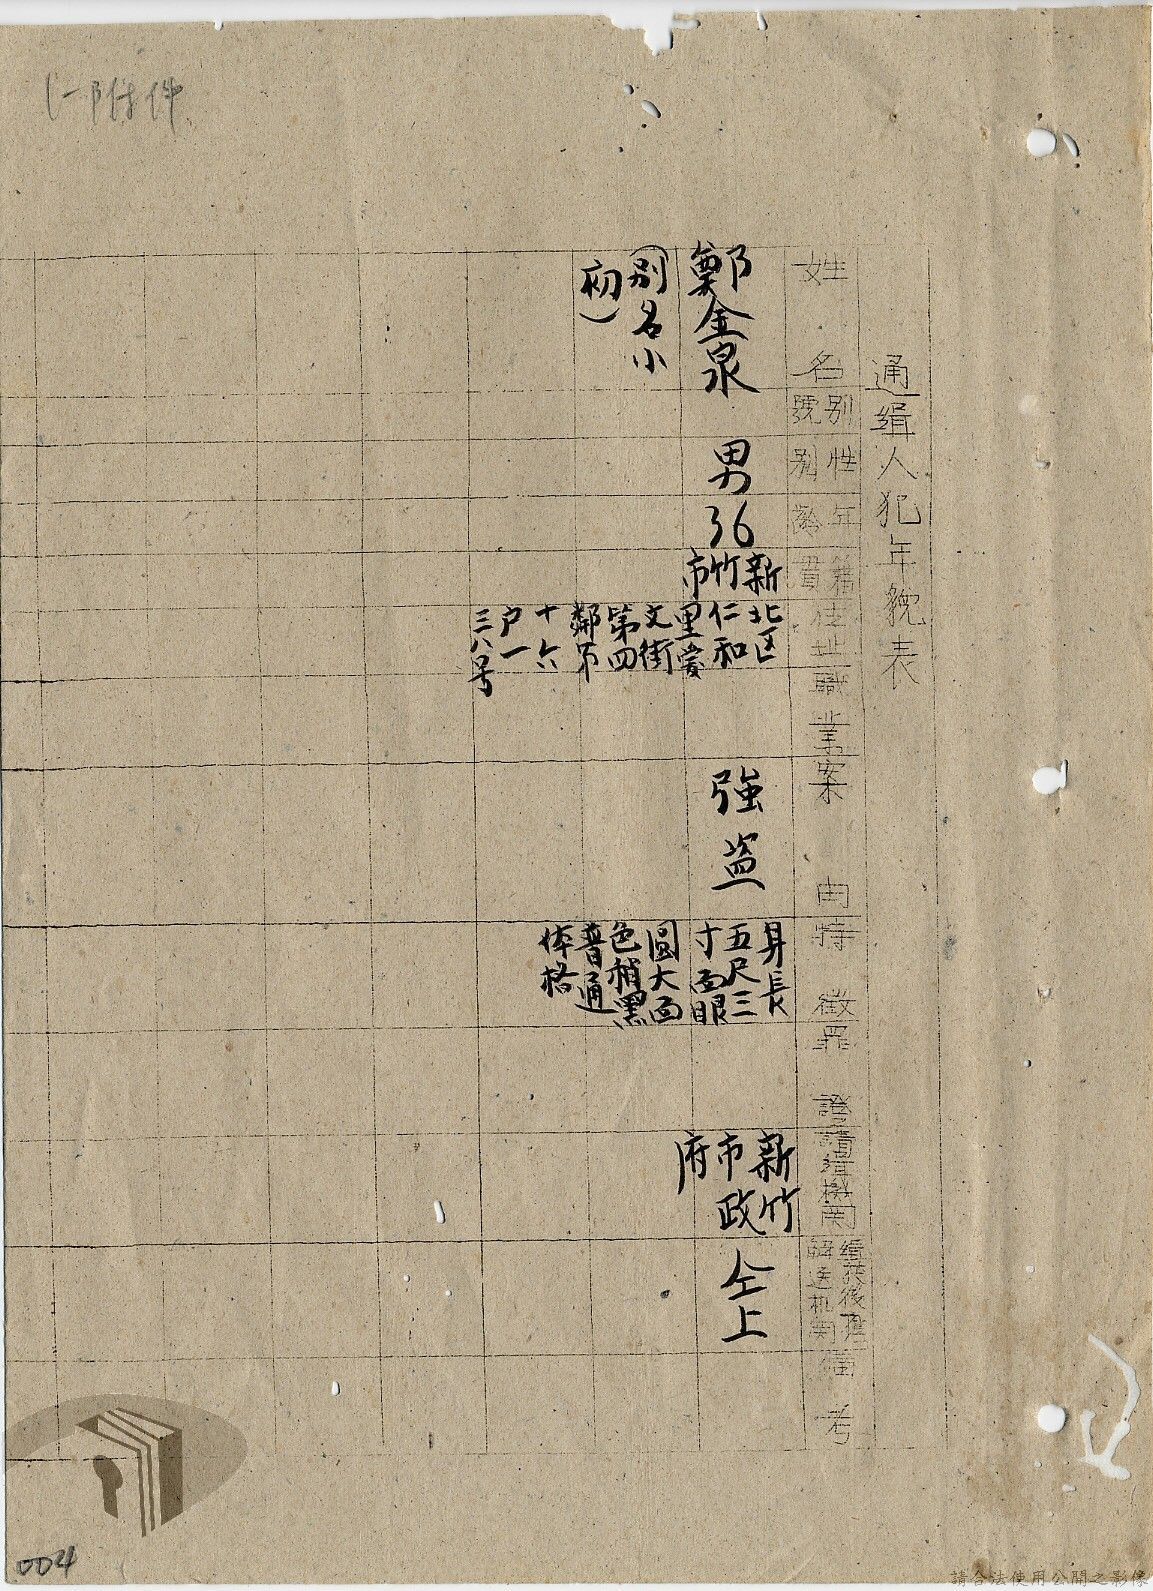 附件
通緝人犯年貌表
姓名
別號
性別
年齡
籍貫
住址
職業
案由
特徵
罪證
請緝機關
緝获後應
解送机関
備考
鄭金泉
(別名小
初)
男
36
新
竹
市
北区
仁和
里愛
文街
第四
鄰第
十六
户一
三八号
強盗
身長
五尺三
寸面眼
圓大面
色稍黑
普通
体格
新竹
市政
府
仝上
004
請合法使用公開之影像